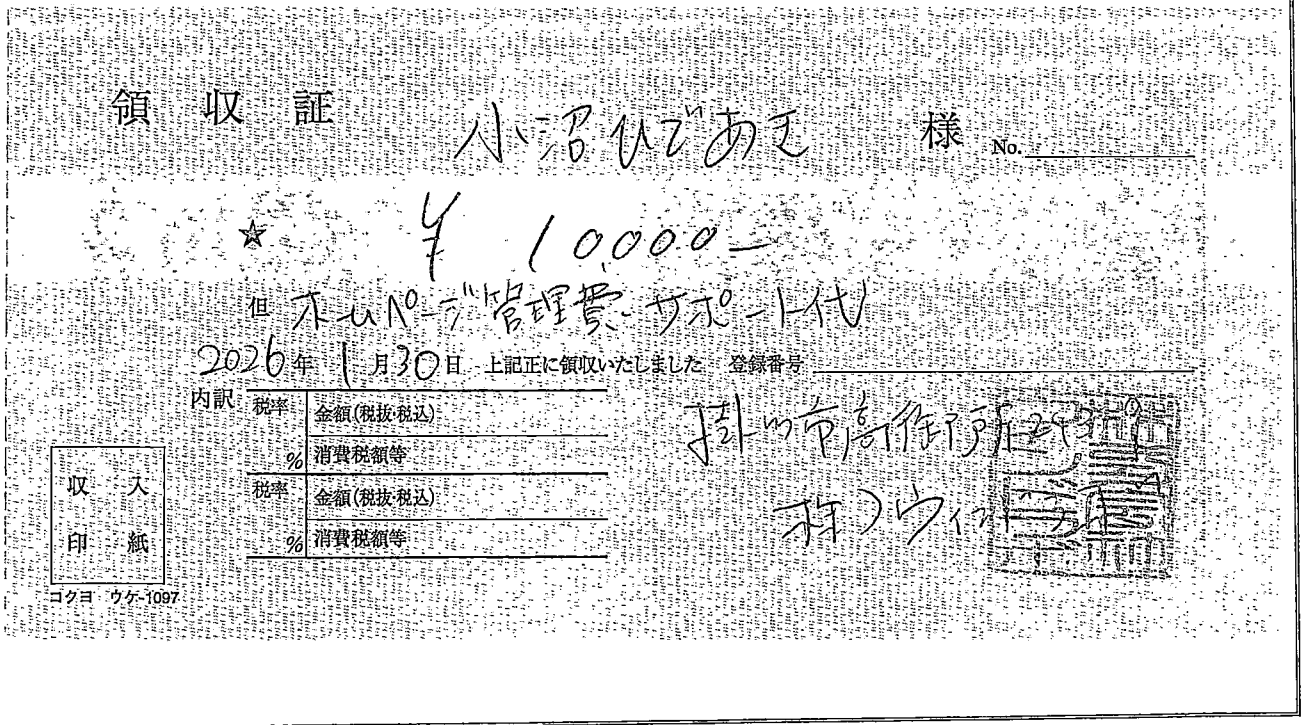 領収証 小沼ひであき 様 No.
☆ ¥10,000-
但 ホームページ管理費・サポート代
2026年 1月30日 上記正に領収いたしました 登録番号
内訳 税率 % 金額(税抜・税込)
消費税額等
税率 % 金額(税抜・税込)
消費税額等
収入
印紙
コクヨ ウケ-1097
掛川市高御所